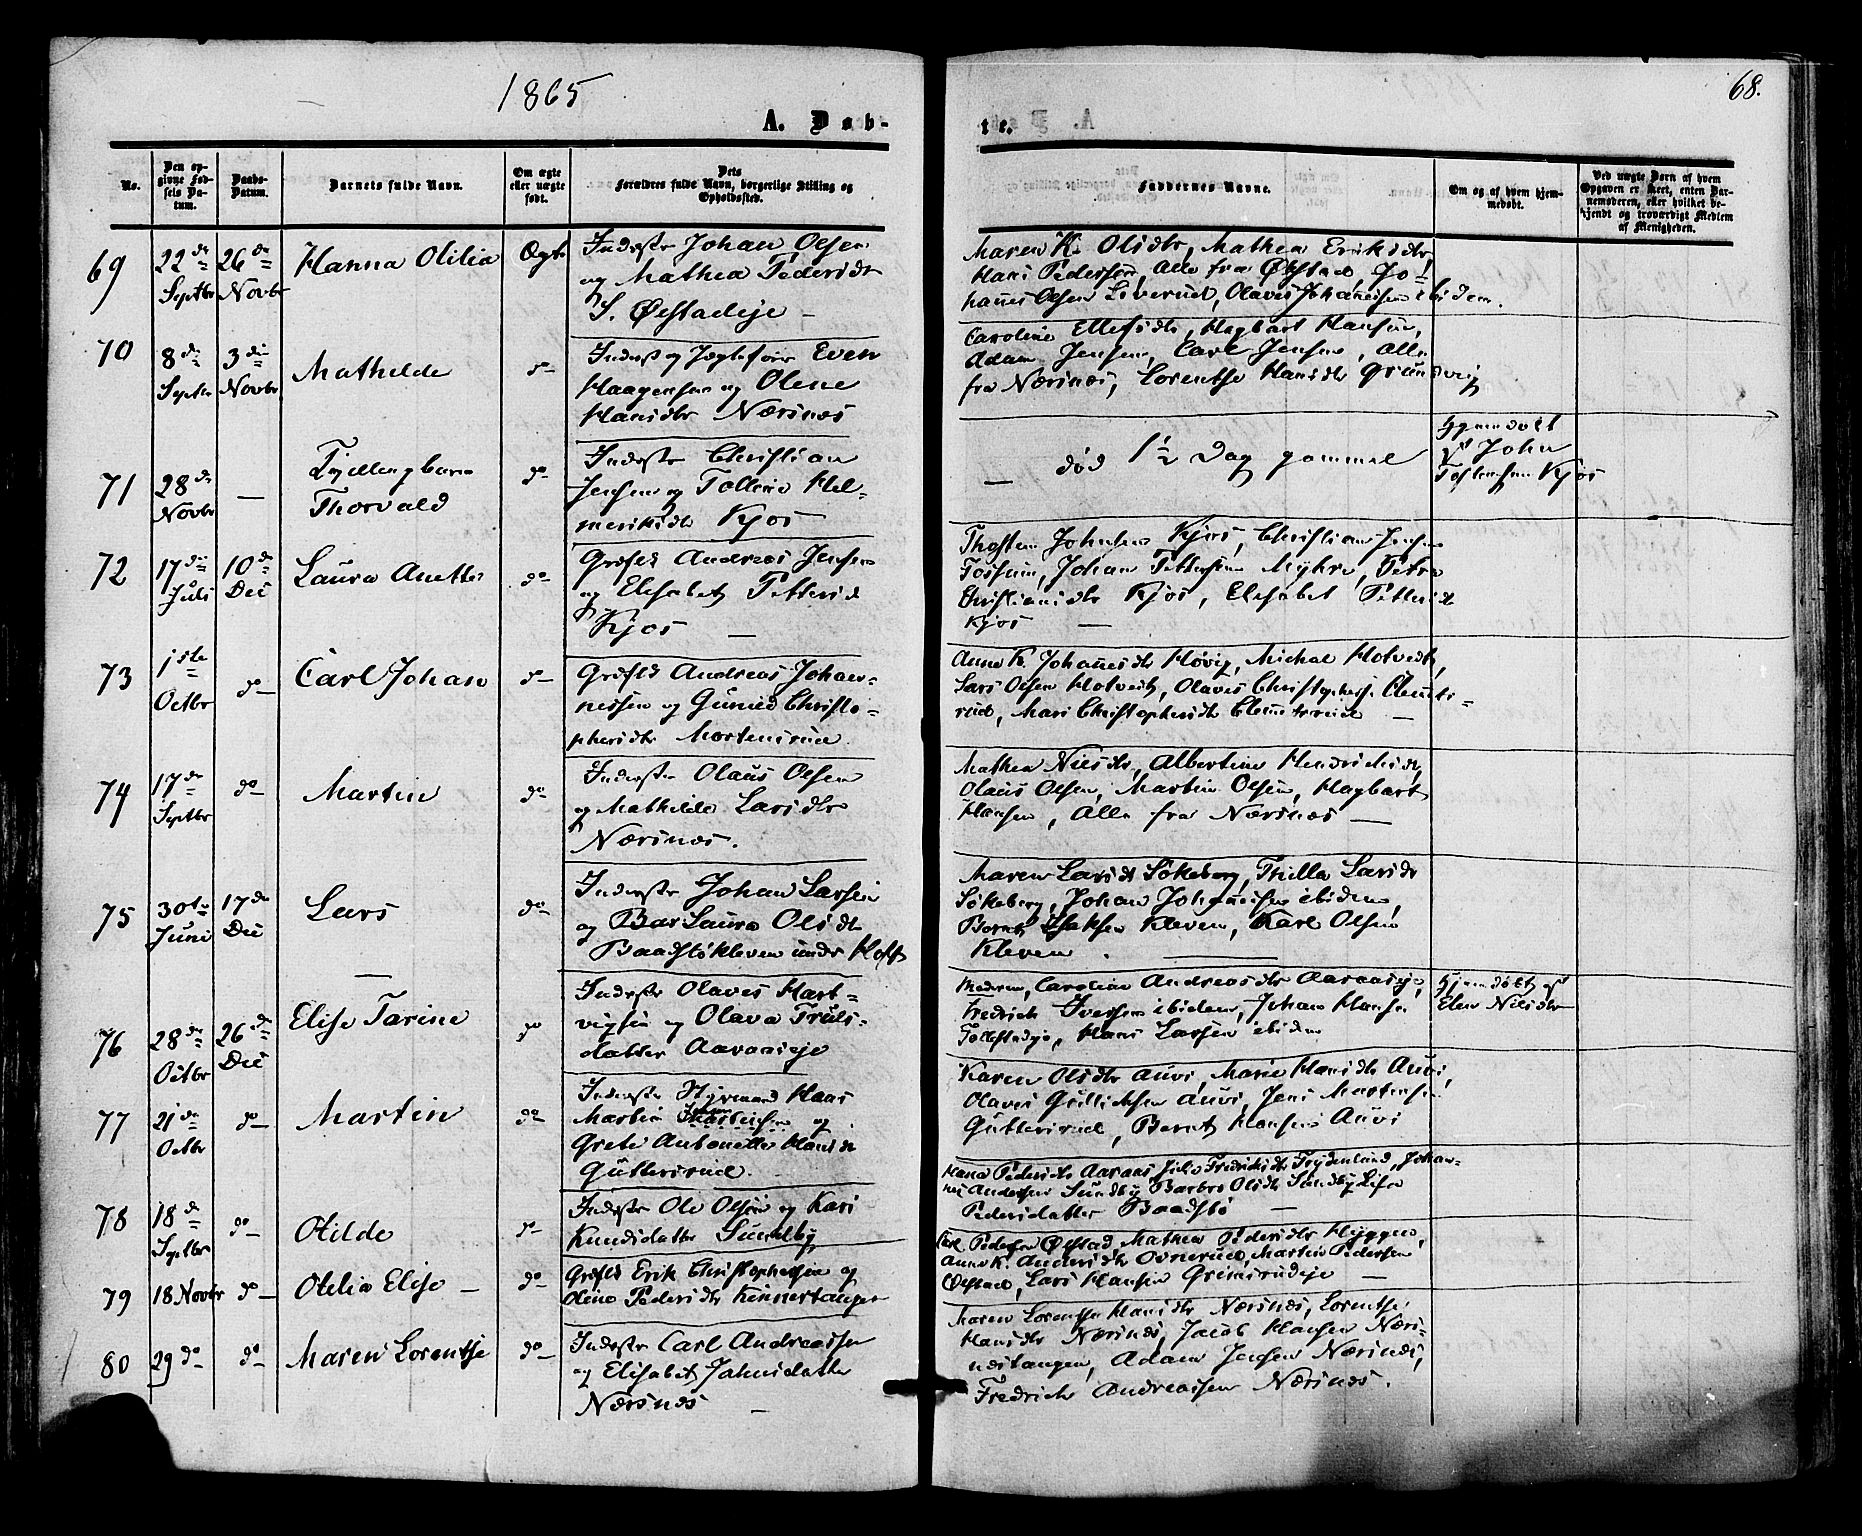 1865
68.
A. Døb-
te.
No.
Den opgivne Fødsels Datum.
Daabs-Datum.
Barnets fulde Navn.
Om ægte eller uægte født.
Dets Forældres fulde Navn, borgerlige Stilling og Opholdssted.
Faddernes Navne.
Om og af hvem hjemmedøbt.
Ved uægte Børn af hvem Opgaven er skeet, enten Barnemoderen, eller hvilket bekjendt og troværdigt Medlem af Menigheden.
69 22de Septbr 26de Novbr Hanna Otilia Ægte
Inderste Johan Olsen
og Mathea Pedersdtr
S. Øistadeje –
Maren K. Olsdtr, Mathea Eriksdtr
Hans Pedersen, Alle fra Øistad, Jo-
hannes Olsen Loverud, Olaves Johannesen ibidem.
70 8de Septbr 3die Novbr Mathilde do –
Inderst og Jægtefører Even
Haagensen og Olene
Hansdtr Nærsnæs
Caroline Ellefsdtr, Hagbart Hansen,
Adam Jensen, Carl Jensen, Alle
fra Nærsnæs, Lorentse Hansdtr Grundvig
71 28de Novbr – Tvillingbarn
Thorvald do –
Inderste Christian
Jensen og Tolline Hel-
meriksdtr Kjos –
– død 1½ Dag gammel
Hjemdøbt
af John
Tostensen Kjos
72 17de Juli 10de Dec Laura Anette do –
Grdfld Andreas Jensen
og Elisabet Pettersd
Kjos –
Thosten Johnsen Kjos, Christian Jensen
Fossum, Johan Pettersen Myhre, Petra
Christiansdtr Kjos, Elisabet Pettersdtr
Kjos –
73 1ste Octbr do – Carl Johan do –
Grdfld Andreas Johan-
nessen og Gunild Christo-
phersdtr Mortensrud.
Anne K. Johannesdtr Høvig, Michal Hotvedt,
Lars Olsen Hotvedt, Olaves Christophersen Clemets-
rud, Mari Christophersdtr Clemetsrud –
74 17de Septbr do – Martin do –
Inderste Olaus Olsen
og Mathilde Larsdtr
Nærsnæs.
Mathea Nilsdtr, Albertine Hendriksdtr,
Olaus Olsen, Martin Olsen, Hagbart
Hansen, Alle fra Nærsnæs –
75 30te Juni 17de Dec Lars do –
Inderste Johan Larsen
og Laura Olsdtr
Baadstøkleven under
Maren Larsdtr Søkeberg, Larsdtr
Søkeberg, Johan Johannesen ibidem,
Bernt Isaksen Kleven, Karl Olsen
Kleven.
76 28de Octbr 26de Dec Elise Tarine do
Inderste Olaves Hart-
vigsen og Olava Truls-
datter Aaraaseje
Moderen, Caroline Andreasdtr Aaraaseje,
Fredrich Iversen ibidem, Johan Hansen
Follestadeje, Hans Larsen ibidem
Hjemdøbt af
Elen Nilsdtr
77 21de Octbr do – Martin do –
Inderste Styrmand Hans
Martin og
Grete Antonette Hansdtr
Guttersrud.
Karen Olsdtr Auvi, Marie Hansdtr Auvi,
Olaves Auvi, Jens Mortensen
Guttersrud, Bernt Hansen Auvi
78 18de Septbr do – Otilde do –
Inderste Ole Olsen og Kari
Knudsdatter Sundby
Hana Pedersdtr Aaraas, Julie Fredriksdtr Frydenlund, Johan-
nes Andersen Sundby, Barbro Olsdtr Sundby, Lise
Pedersdatter Baadstø –
79 18 Novbr do – Otelia Elise – do –
Grdfld Erik Christophersen og
Oline Pedersdtr Kinnertangen
Carl Pedersen Øistad, Mathea Pedersdtr Hyggen,
Anne K. Andersdtr Ovnerud, Martin Pedersen
Øistad, Lars Hansen Grimsrudeje –
80 29 do do – Maren Lorentse do –
Inderste Carl Andreassen
og Elisabet Johnsdatter
Nærsnæs –
Maren Lorentse Hansdtr Nærsnæs, Lorentse
Hansdtr Nærsnæs, Jacob Hansen Nærs-
næstangen, Adam Jensen Nærsnæs,
Fredrich Andreassen Nærsnæs.